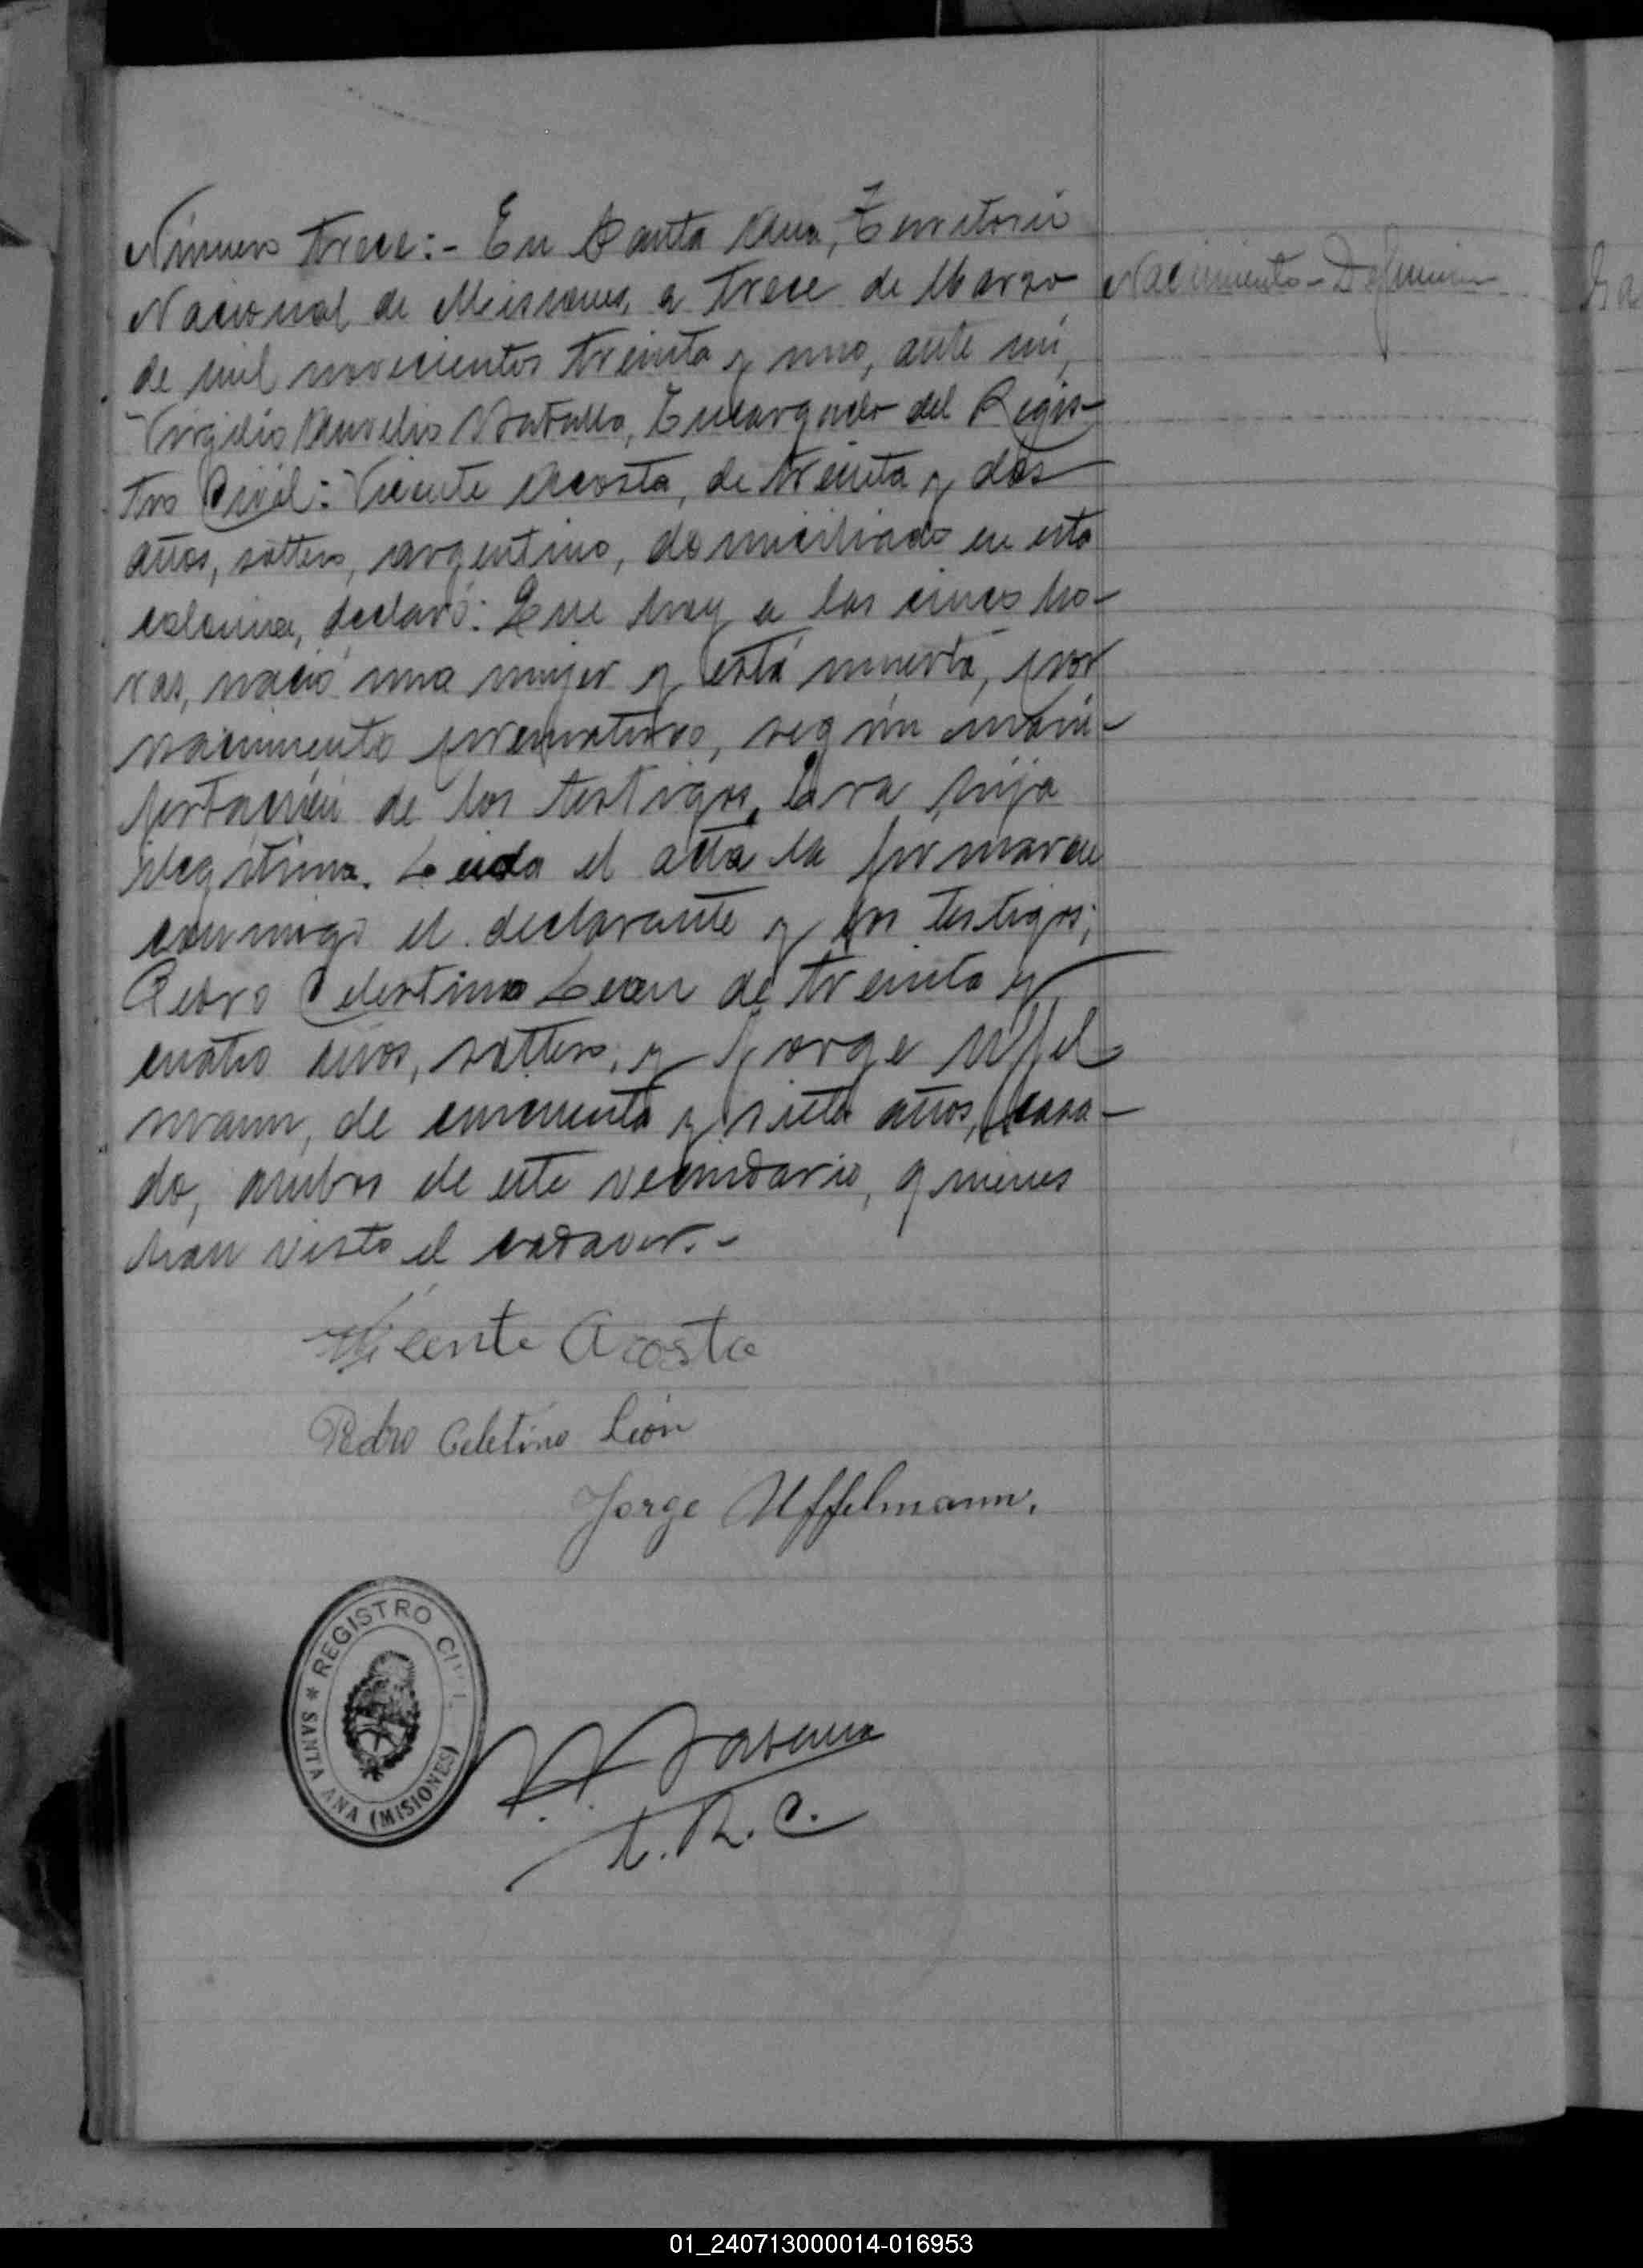 Número trece:- En Santa Ana, Territorio
Nacional de Misiones, a trece de Marzo
de mil novecientos treinta y uno, ante mí,
Virgilio Aurelio Encargado del Regis-
tro Civil: Vicente Acosta, de treinta y dos
años, soltero, argentino, domiciliado en esta
colonia, declaró: Que hoy a las cinco ho-
ras, nació una mujer y está muerta, por
nacimiento prematuro, según mani-
festación de los testigos. Era hija
ilegítima. Leida el acta la firmaron
conmigo el declarante y los testigos;
Pedro Celestino Leon de treinta y
cuatro años, soltero, y Jorge Uffel
mann, de cincuenta y siete años, casa-
do, ambos de este vecindario, quienes
han visto el cadaver.-
Nacimiento - Defunción
Vicente Acosta
Pedro Celetino León
Jorge Uffelmann.
REGISTRO CIVIL
* SANTA ANA (MISIONES)
E. R. C.
01_240713000014-016953